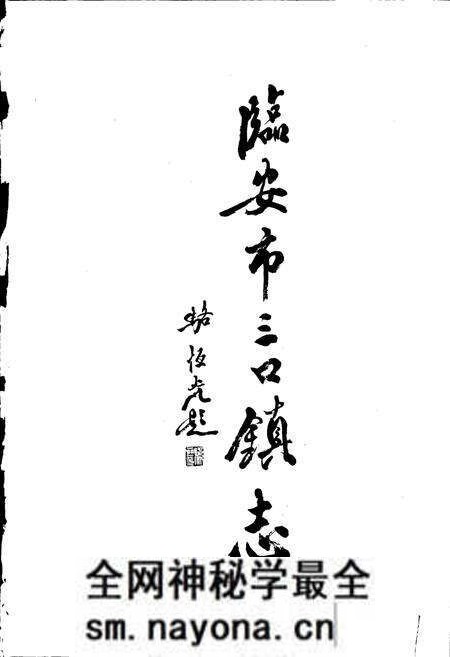 臨安市三口鎮志
駱恆虎題
全网神秘学最全
sm.nayona.cn